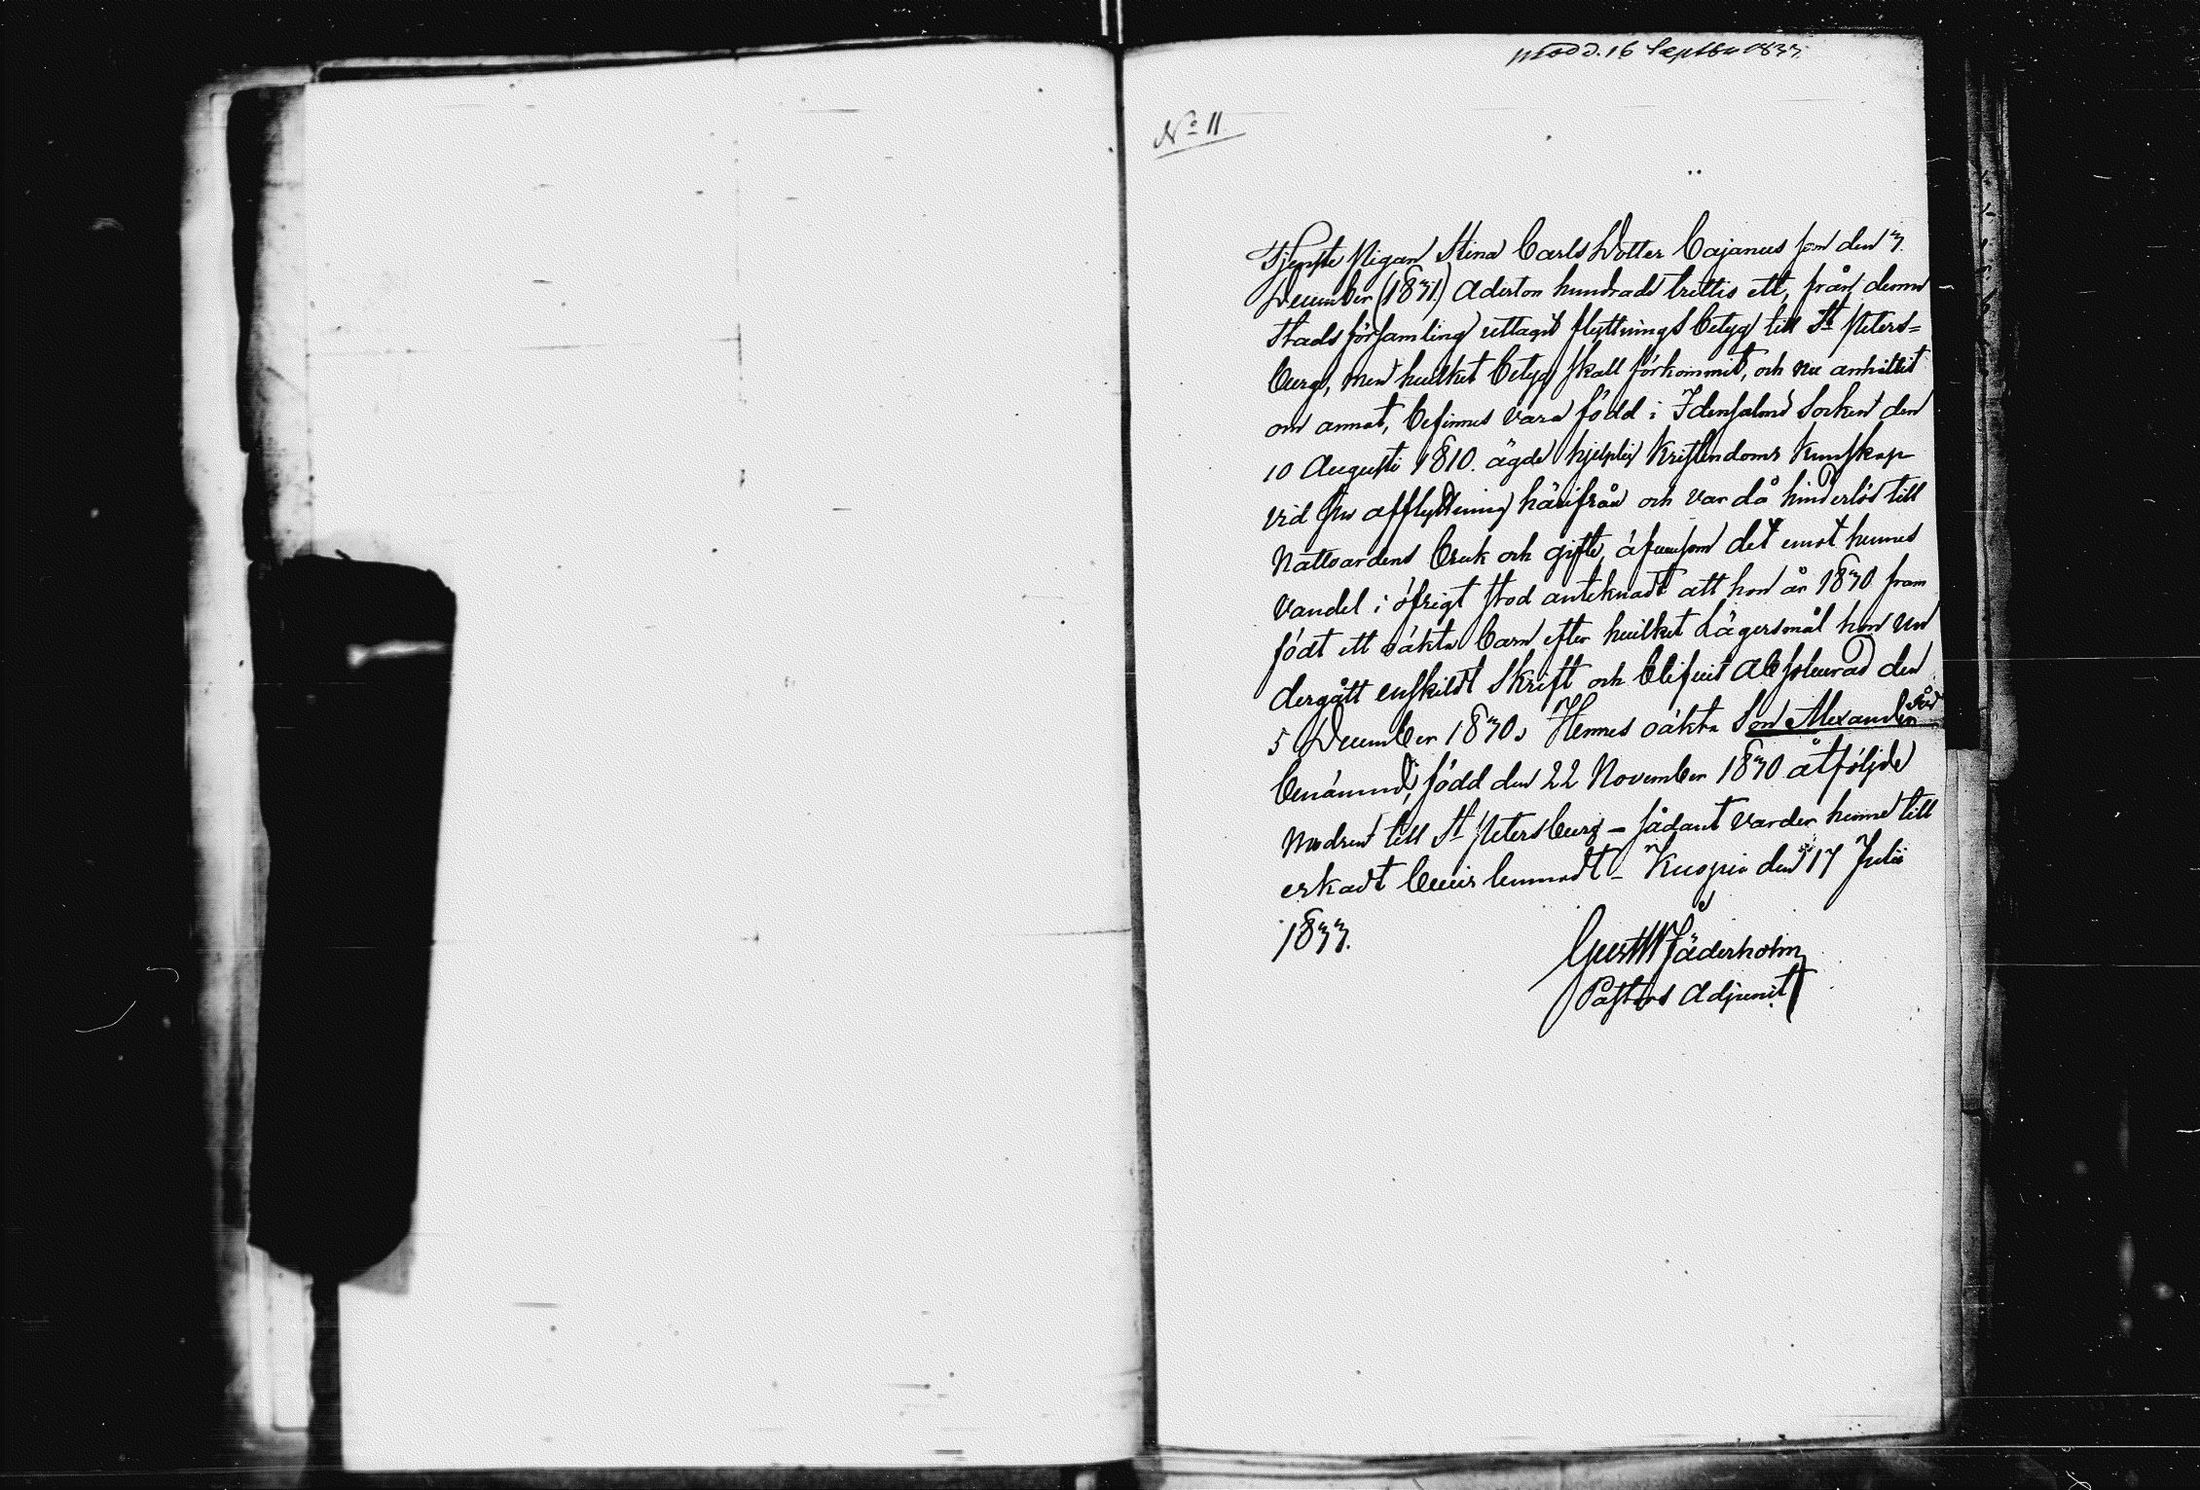 prod d. 16 Septbr 1833.
No 11
Tjenste Pigan Stina Carls Dotter Cajanus som den 3.
December (1831.) Aderton hundrade trettio ett, från denna
Stads församling uttagit flyttnings betyg till St Peters=
burg, men hvilket betyg skall förkommit, och nu anhållit
om annat, befinnes vara född i Idensalmi Socken den
10 Augusti 1810. ägde hjelplig Kristendoms Kunskap
vid sin afflyttning härifrån och var då hinderlös till
Nattvardens bruk och gifte, äfvensom det emot hennes
vandel i öfrigt stod anteknadt att hon år 1830 fram
födt ett oäkta barn efter hvilket Lägersmål hon un
dergått enskildt Skrift och blifvit Absolverad den
5 December 1830. Hennes oäkta Son Alexander
benämnd, född den 22 November 1830 åtföljde
modren till St Petersburg – sådant varder henne till
erkadt bevis lemnadt – Kuopio den 17 Julii
1833.
Gust W Fäderholm
Pastors Adjunct